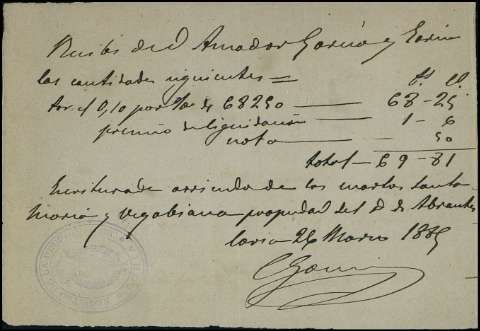 Recibí de D. Amador García y
las cantidades siguientes =
Ps. C.
Por el 0,10 por % de 68250 — 68-25
premio de liquidación — 1-6
nota — 50
total — 69-81
Escritura de arriendo de los cuartos Santa
María y Vegabiana propiedad del D. de Abrantes
Coria 26 Marzo 1885